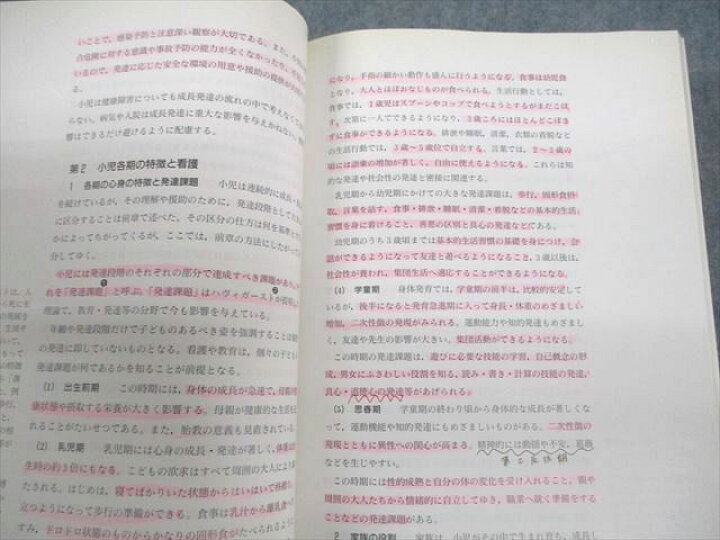 いことで，感染予防と注意深い観察が大切である。また，
合危険に対する意識や事故予防の能力が全くなかったり，
いるので，発達に応じた安全な環境の用意や援助の提供が
小児は健康障害についても成長発達の流れの中で考えなく
らない。病気や入院は成長発達に重大な影響を与えかねない
響はできるだけ避けるように配慮する。
第2 小児各期の特徴と看護
1 各期の心身の特徴と発達課題 小児は連続的に成長・
を続けているが，その理解や援助のために，発達段階として
に区分することは前章で述べた。その区分の仕方は何を基準と
かによってちがってくるが，ここでは，前章の方法にしたがって
分してゆく。
小児には発達段階のそれぞれの部分で達成すべき課題があり，
れを「発達課題」と呼ぶ。「発達課題」はハヴィガーストが
理論で，教育・発達等の分野で今も影響を与えている。
年齢や発達段階だけで子どものあるべき姿を強調することは
の発達に即していないものとなる。看護や教育は，個々の子ども
発達課題が何であるかを知ることが前提となる。
(1) 出生前期 この時期には，身体の成長が急速で，母親の
康状態や摂取する栄養が大きく影響する。母親が健康的な生活を
ことがたいせつである。また，胎教の意義も見直されている
(2) 乳児期 乳児期には心身の成長・発達が著しく，体重は
生時の約3倍にもなる。こどもの欲求はすべて周囲の大人により
たされる。はじめは，寝てばかりいた状態からはいはい
立つようになって歩行の準備ができる。食事は乳汁から離乳食へ
すみ，ドロドロ状態のものからかなりの固形食がたべられるように
になり，手指の細かい動作も盛んに行うようになる。食事は幼児食
となり，大人とほぼおなじものが食べられる。生活行動としては，
食事では，1歳児はスプーンやコップで食べようとするがまだこぼ
す。次第に一人でできるようになり，3歳ころにはほとんどこぼさ
ずに食事ができるようになる。排泄や睡眠，清潔，衣類の着脱など
の生活行動では，3歳〜5歳位で自立する。言葉では，2〜3歳の
頃には語彙の増加が著しく，自由に使えるようになる。これらは知
的な発達や社会性の発達と密接に関連する。
乳児期から幼児期にかけての大きな発達課題は，歩行，固形食摂
取，言葉を話す，食事・排泄・睡眠・清潔・着脱などの基本的生活
習慣を身に着けること，善悪の区別と良心の発達などである。
幼児期のうち3歳頃までは基本的生活習慣の基礎を身につけ，会
話ができるようになって友達と遊べるようになること，3歳以後は，
社会性が養われ，集団生活へ適応することができるようになる。
(4) 学童期 身体発育では，学童期の前半は，比較的安定して
いるが，後半になると発育急進期に入って身長・体重のめざましい
増加，二次性徴の発現がみられる。運動能力や知的発達もめざまし
く，友達や先生の影響が大きい。集団活動ができるようになる。
この時期の発達課題は，遊びに必要な技能の学習，自己概念の形
成，男女にふさわしい役割を知る，読み・書き・計算の技能の発達，
良心・道徳心の発達等があげられる。
(5) 思春期 学童期の終わり頃から身体的な成長が著しくな
って，運動機能や知的発達にもめざましいものがある。二次性徴の
発現とともに異性への関心が高まる。精神的には動揺や不安，葛藤
などを生じやすい。 第二反抗期
この時期には性的成熟と自分の体の変化を受け入れること，親や
周囲の大人たちから情緒的に自立してゆき，職業へ就く準備をする
ことなどの発達課題がある。
2 家族の役割 家族は，小児が生まれ育ち，成長し